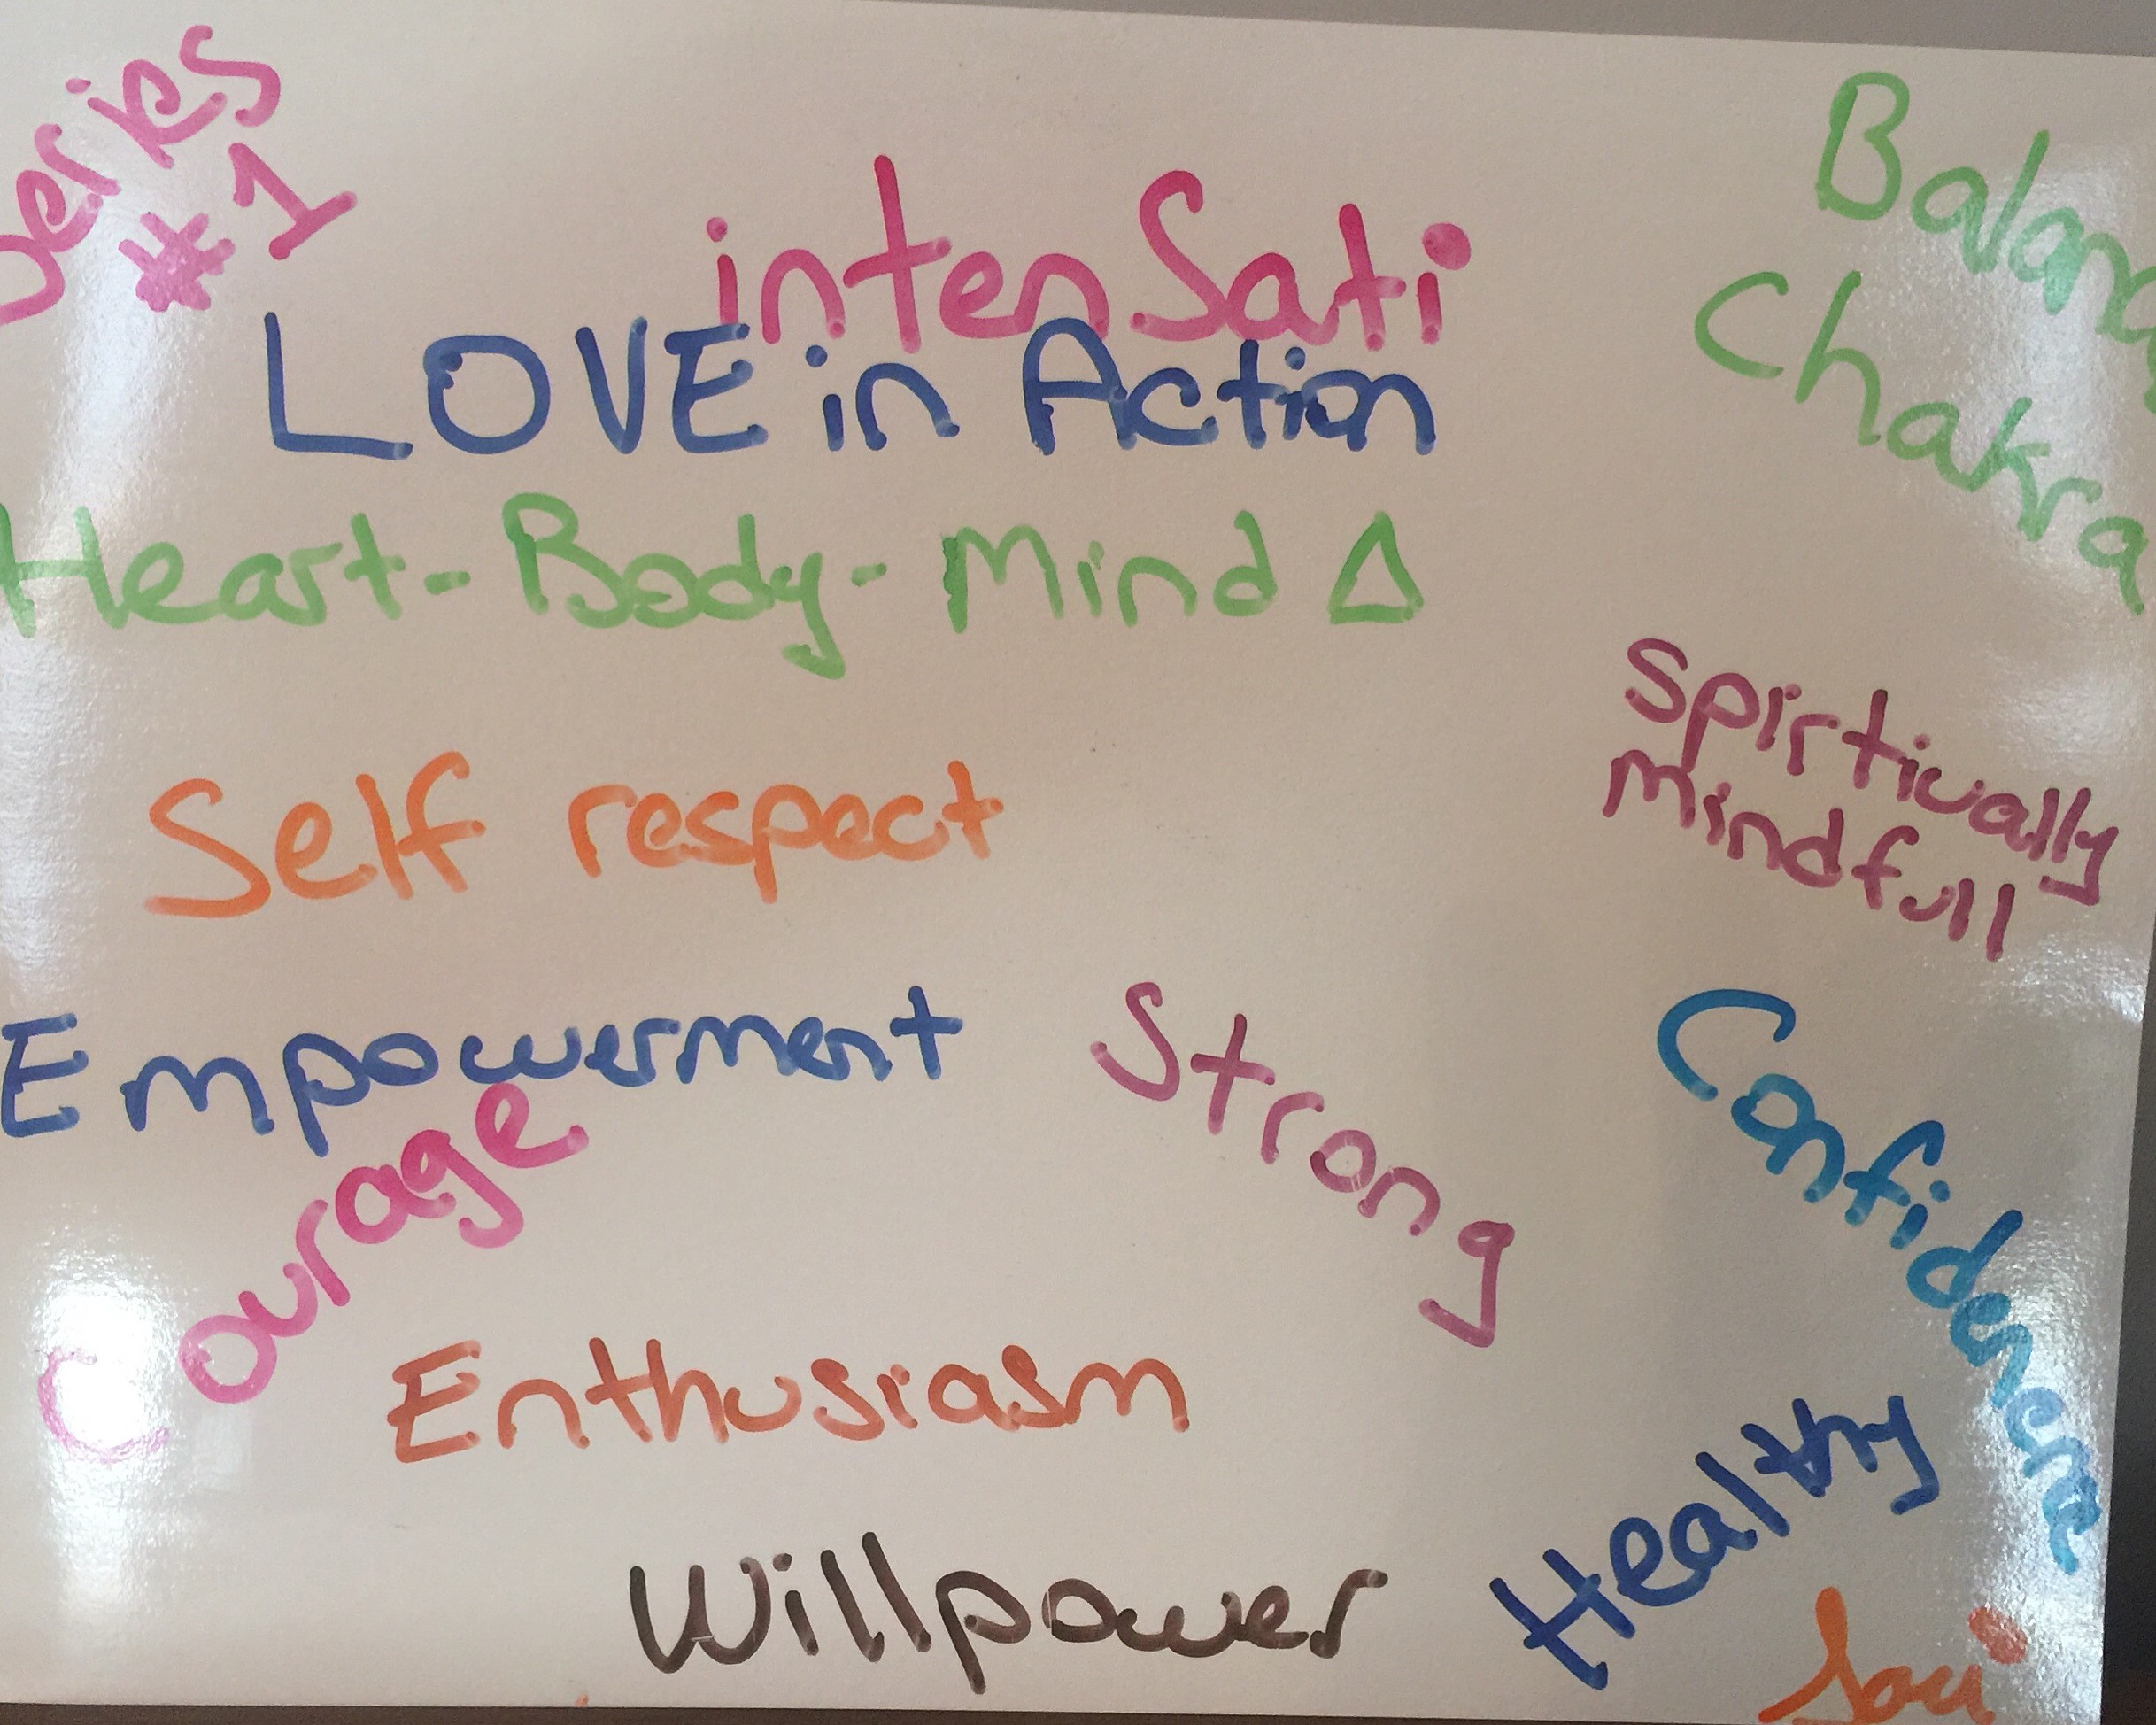 Series
#1
intenSati
LOVE in Action
Heart-Body-Mind Δ
Chakra
Spirtically
Mindfull
Self respect
Empowerment
Strong
Confidence
Courage
Enthusiasm
Healthy
Willpower